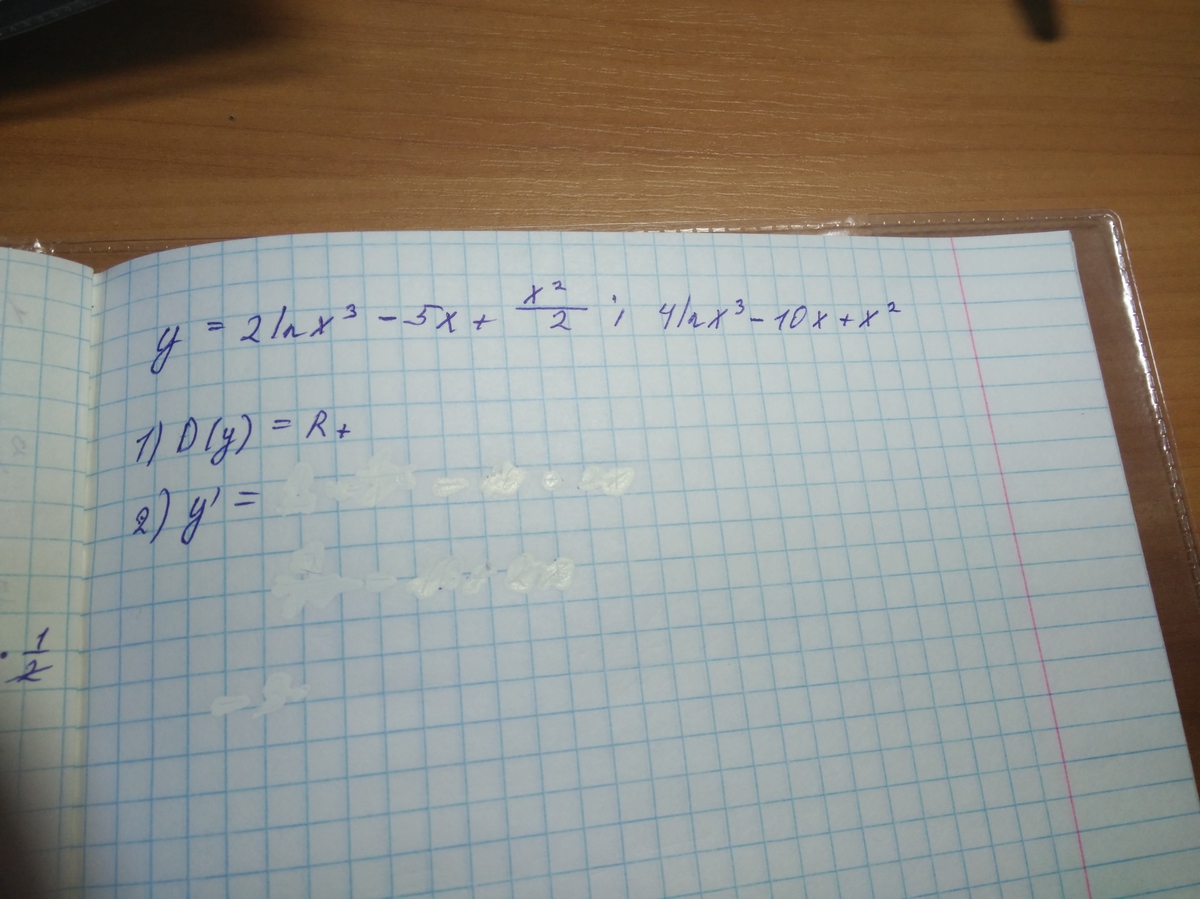 y = 2lnx³ - 5x + x²/2 ; 4lnx³ - 10x + x²
1) D(y) = R₊
2) y' =
· 1/2